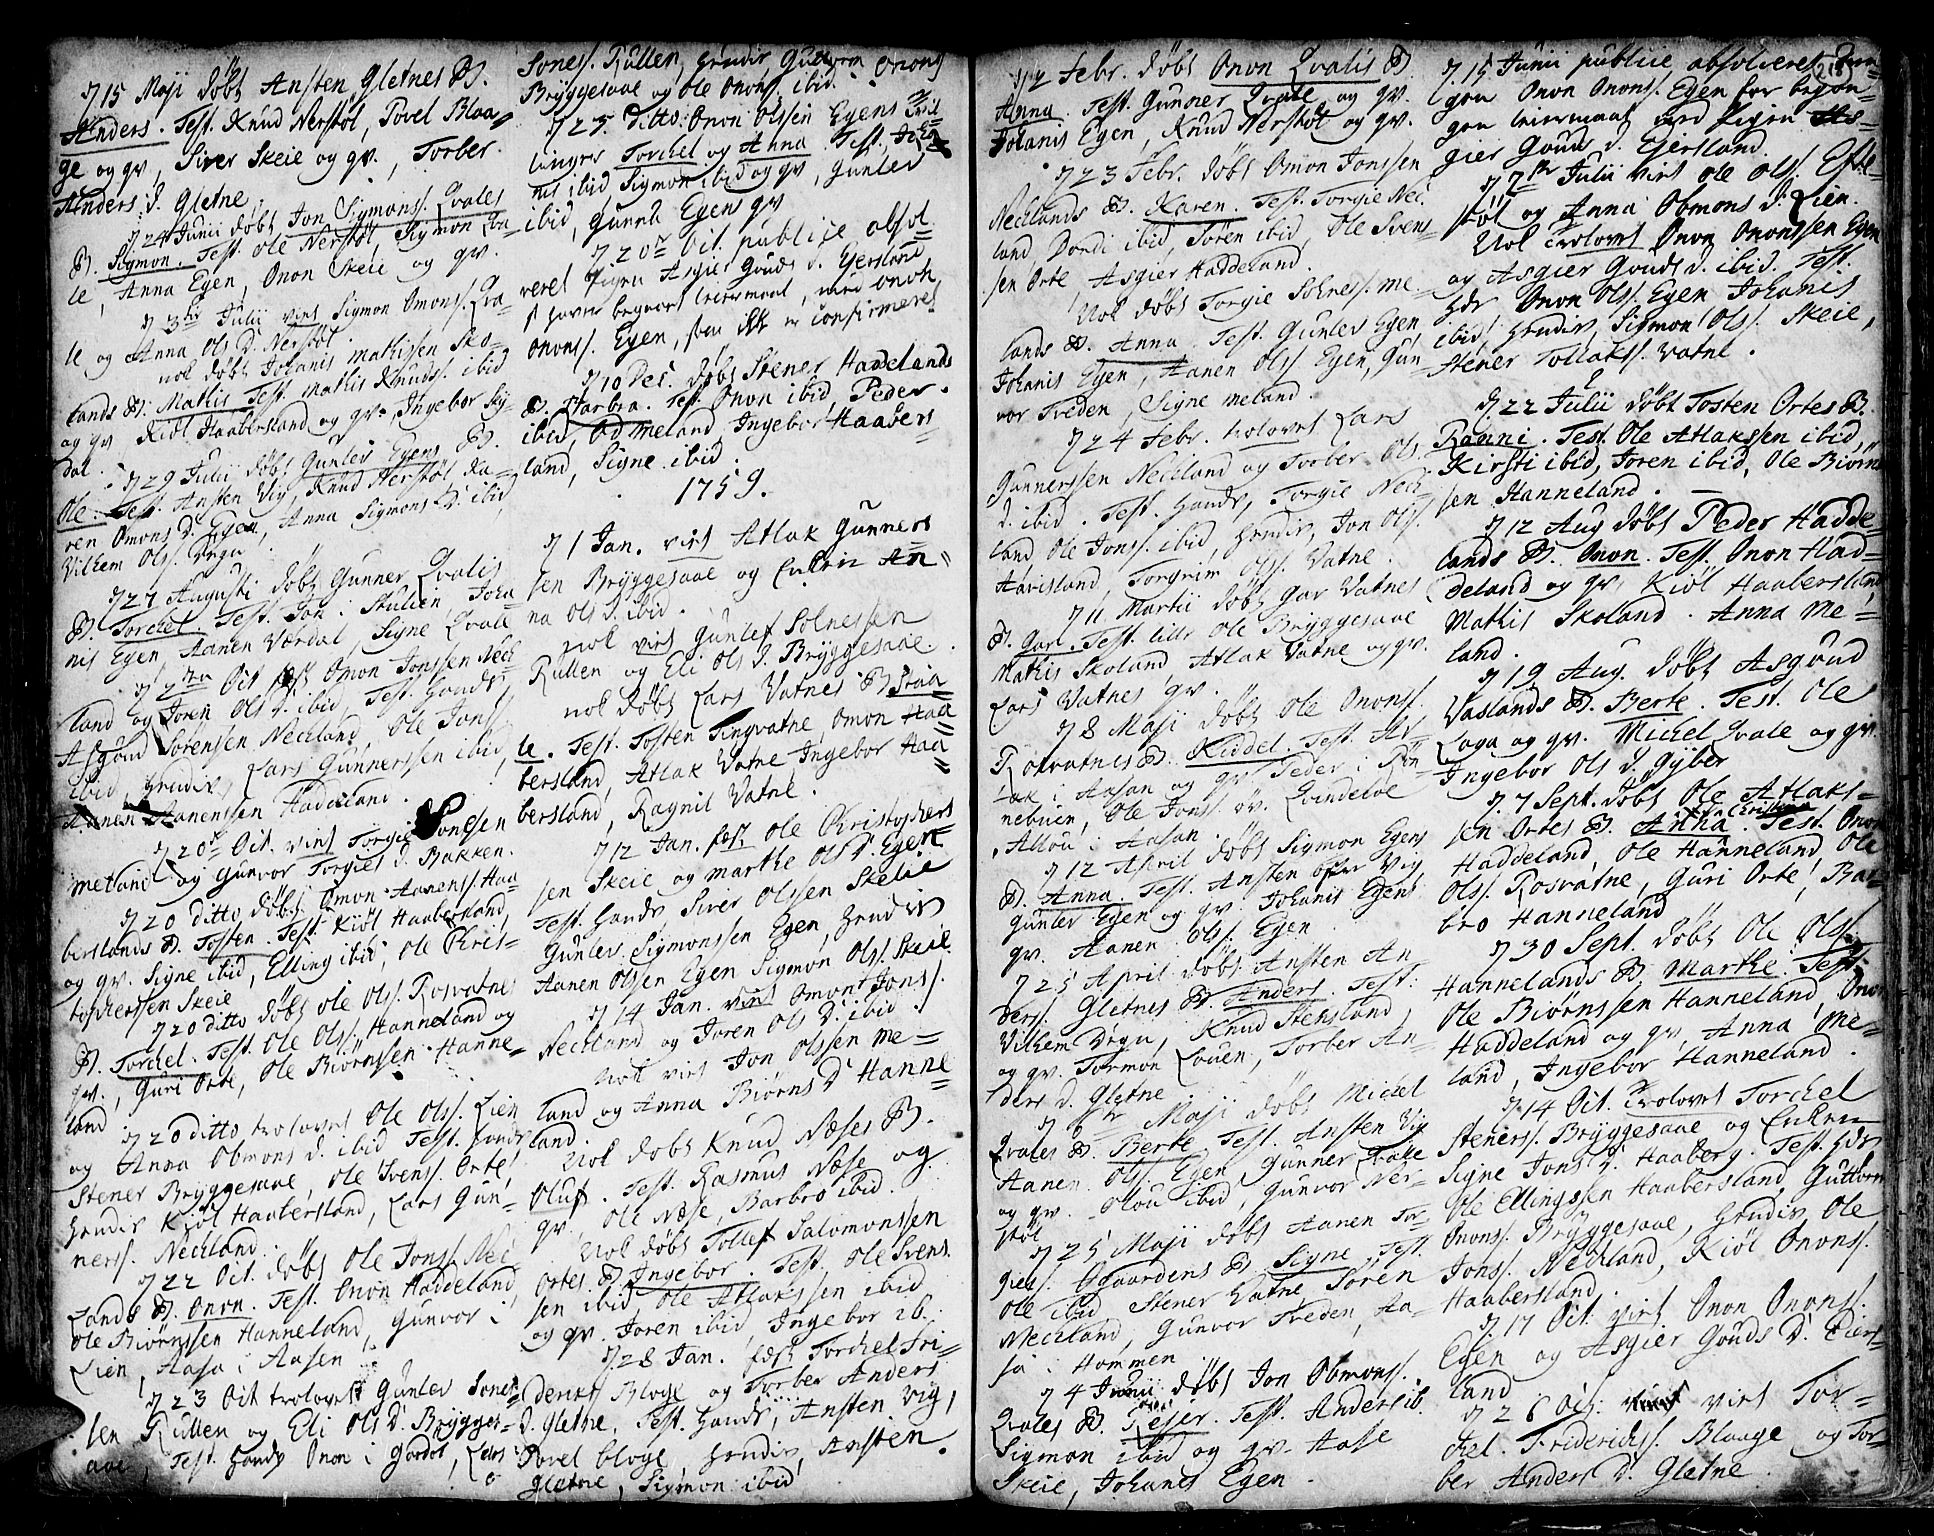 17 15 Maji døbt Ansten Gletnes B.
Anders. Test. Knud Nerstøl, Povel Blaa-
ge og qv, Siver Skeie og qv., Torber
Anders d. Gletne
17 24 Junii døbt Jon Sigmonss. Qvales
B. Sigmon. Test. Ole Nerstøl, Sigmon Qva-
le, Anna Egen, Onon Skeie og qv.
17 3die Julii viet Sigmon Omonss. Qva-
le og Anna Ols d. Nerstøl.
nok døbt Johanis Mathissen Sko-
lands B. Mathis Test. Mathis Knuds. ibid
og qv Kiøl Haabersland og qv. Ingebor Sky-
dal.
17 29 Julii døbt Gunlev Egens B.
Ole. Test. Ansten Vig, Knud Nerstøl, Ka-
ren Omons d. Egen, Anna Sigmons d. ibid
Vilhem Olss. Degn
17 27 Augusti døbt Gunner Qvalis
B. Torchel. Test. Jon i Stulien, Joha-
nis Egen Aanen Værdal, Signe Qvale
17 7tn Oct fæst Omon Jonssen Nech-
land og Joren Ols d. ibid, Test. Hands
Asgoud Sørensen Neckland, Ole Jons.
ibid, hendis Lars Gunnerssen ibid,
Aanen Aanenssen Haddeland.
17 20de Oct. viet Torgie Sonesen
Metland og Gunvor Torgies d. Bakken.
17 20 ditto døbt Omon Aanenss. Haa-
berslands B. Tosten. Test. Kiøl Haabersland,
og qv. Signe ibid, Elling ibid, Ole Chris-
tophersen Skeie
17 20 ditto døbt Ole Olss. Rosvatnes
B. Torchel. Test. Ole Olss. Hanneland og
qv., Guri Orte, Ole Biørnsen Hanne-
land
17 20 ditto trolovet Ole Olss. Lien
og Anna Obmons d. ibid Test. hands
Stener Bryggesaae, Ole Svenss. Orte,
hendis Kiøl Haabersland, Lars Gun-
ners. Neckland.
17 22 Oct. døbt Ole Jonss. Nec-
Lands B. Onon. Test. Onon Haddeland,
Ole Biørnssen Hanneland, Gunvor i
Lien, Aasa i Aasen
17 23 Oct trolovet Gunlev Sones-
sen Rullen og Eli Ols d. Brygges-
aae, Test. hands Onon i Gordøl, Lars
Soness. Rullen, hendis Guttorm Onons
Bryggesaae og Ole Ononss. ibid.
17 25. Ditto Onon Olssen Egens Tvil-
linger Torchel og Anna. Test. Joha-
nis ibid Sigmon ibid og qv, Gunlev
ibid, Gunnil Egens qv
17 20de Oct. publice absol-
veret Pigen Asgier Gouds d. Ejersland
for begaaet leiermaal, med Onon
Ononss. Egen, som ikke er confirmeret
17 10 Dec. døbt Stener Haddelands
B. Barbra. Test. Onon ibid, Peder
ibid, Od Meland Ingebor Haabers-
land, Signe ibid.
1759.
17 1 Jan. viet Atlak Gunners
sen Bryggesaae og Enken An-
na Ols d. ibid.
nok viet Gunlef Solnessen
Rullen og Eli Ols d. Bryggesaae.
nok døbt Lars Vatnes B Siaa-
le. Test. Tosten Tingvatne, Omon Haa-
bersland, Atlak Vatne Ingebor Haa-
bersland, Ragnil Vatne.
17 12 Jan. fæst Ole Christophers
sen Skeie og Marthe Ols d. Egen
Test. hands Siver Olssen Skeie
Gunlev Sigmonssen Egen, hendis
Aanen Olssen Egen Sigmon Olss. Skeie.
17 14 Jan. viet Omon Jonss.
Neckland og Joren Ols d. ibid.
Nok viet Jon Olssen Me-
land og Anna Biørns d. Hanne-
land.
Nok døbt Knud Næses B.
Oluf. Test. Rasmus Næse og
qv. Ole Næse, Barbro ibid.
Nok døbt Tollef Salomonssen
Ortes B Ingebor. Test. Ole Svens
sen ibid, Ole Atlakssen ibid
og qv. Joren ibid, Ingebor ib.
17 28 Jan. fæst Torchel Fri-
derichs Bloge og Torber Anders
d. Gletne, Test. hands, Ansten Vig,
Povel bloge, hendis, Ansten
Gletne, Sigmon ibid
17 2 Febr. døbt Onon Qvalis B
Anna. Test. Gunner Qvale og qv.
Johanis Egen, Knud Nerstøl og qv.
17 23 Febr. døbt Omon Jonssen
Necklands B. Karen. Test. Torgie Nec-
land, Dordi ibid, Søren ibid, Ole Svens-
sen Orte, Asgier Haddeland.
Nok døbt Torgie Solness. Me-
lands B. Anna. Test. Gunlev Egen,
Johanis Egen, Aanen Olss Egen, Gun
vor Treden, Signe Meland.
17 24 Febr. trolovet Lars
Gunnerssen Neckland og Torber Ols
d. ibid. Test. Hands, Torgie Neck-
land Ole Jonss. ibid, hendis, Jon Olss.
Havisland, Torgrim Olss. Vatne.
17 11 Martii døbt Gar Vatnes
B. Garl. Test. lille Ole Bryggesaae
Mathis Skoland Atlak Vatne og qv.
Lars Vatnes qv.
17 8 Maji døbt Ole Ononss.
Rosvatnes B. Kiddel. Test. At-
lak i Aasan og qv, Peder i Røn-
nebuen, Ole Jonss. øv. Qvindeløe
Allou i Aasan.
17 12 April døbt Sigmon Egens
B. Anna. Test. Ansten ofre Vig
Gunlev Egen og qv. Johanis Egens
qv. Aanen Olss. Egen
17 25 April døbt Ansten An-
derss. Gletnes B Anders. Test:
Vilhem Degn, Knud Stensland,
og qv. Tormon Louen, Torber An-
ders d. Gletne
17 6te Maji døbt Michel
Qvales B. Berte. Test. Ansten Vig
Aanen Olss. Egen, Gunner Qvale
og qv. Olou ibid, Gunvor Ner-
støl
17 25 Maji døbt Aanen Tor-
gies. Ggaardens B. Signe. Test.
Ole ibid Stener Vatne, Søren
Neckland, Gunvor Treden, Aa-
sa i Hommen
17 4 Junii døbt Jon Obmons.
Qvales B. Tejer. Test. Anders ib.
Sigmon ibid og qv. Aase
Skeie, Johanis Egen.
218
17 15 Junii publice absolveret
Onon Ononss. Egen for began-
gen leiermaal med Pigen As-
gier Gouds d. Ejersland.
17 7tr Julii viet Ole Olss. Efte-
støl og Anna Obmons d. Lien.
Nok trolovet Onon Ononssen Egen
og Asgier Gouds d. ibid. Test.
hds Onon Olss. Egen Johanis
ibid, hendis, Sigmon Olss. Skeie,
Stener Tollakss. Vatne.
17 22 Julii døbt Tosten Ortes B.
Ranni. Test. Ole Atlakssen ibid,
Kirsti ibid, Joren ibid, Ole Biørns
sen Hanneland.
17 12 Aug. døbt Peder Hadde-
lands B. Onon. Test. Onon Had-
deland og qv. Kiøl Haabersland
Mathis Skoland. Anna Me-
land.
17 19 Aug. døbt Asgoud
Vaslands B. Berte. Test. Ole
Loga og qv. Michel Qvale og qv.
Ingebor Ols d. Gyber
17 7 Sept. døbt Ole Atlaks-
sen Ortes B. Anna Christina. Test. Onon
Haddeland, Ole Hanneland Ole
Olss. Rosvatne, Guri Orte, Ba-
bro Hanneland
17 30 Sept. døbt Ole Olss.
Hannelands B. Marthe. Test.
Ole Biørnssen Hanneland, Onon
Haddeland og qv, Anna Me-
land, Ingebor Hanneland.
17 14 Oct. trolovet Torchel
Steners. Bryggesaae og Enken
Signe Jons d. Haaberg. Test. hds
Ole Ellingssen Haabersland, Guttorm
Ononss. Bryggesaae, hendis, Ole
Jonss. Neckland, Kiøl Ononss.
Haabersland.
17 17 Oct. viet Onon Ononss.
Egen og Asgier Gouds d. Eiers-
land
17 26 Oct. viet Tor-
chel. Fridericks. Blaage og Tor-
ber Anders d. Gletne.